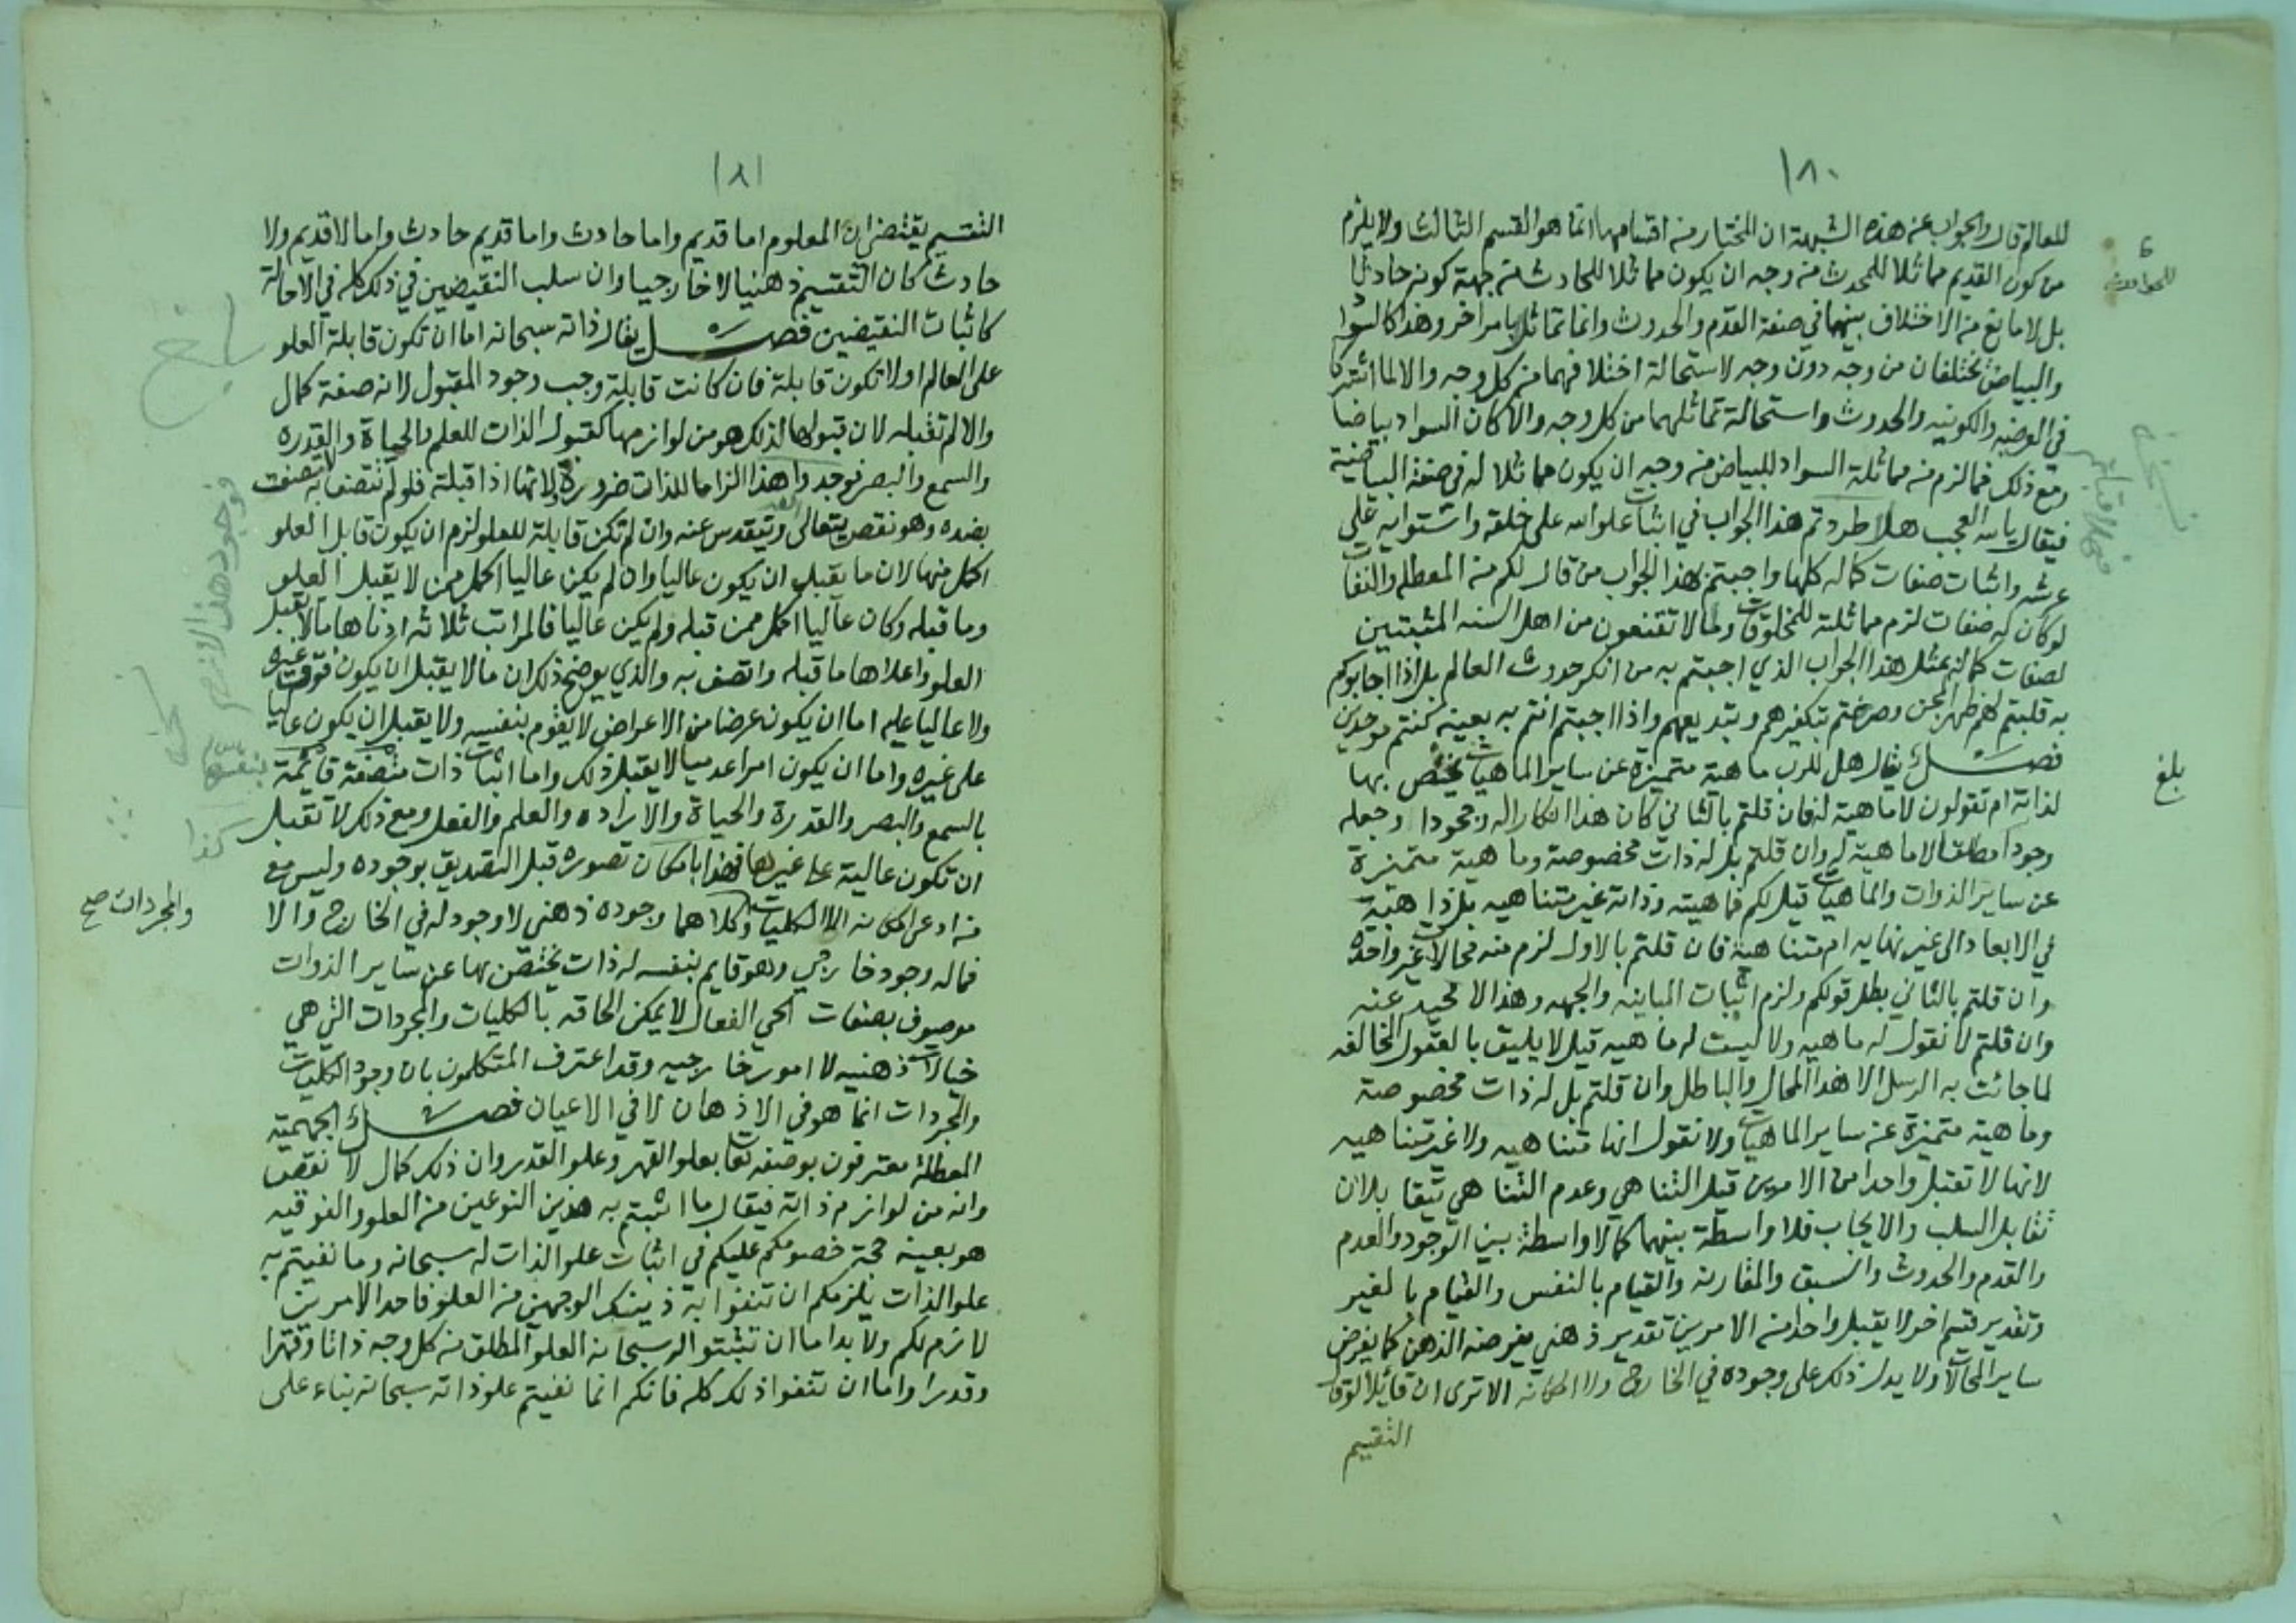 ١٨٠
للعالم قال والجواب عن هذه الشبهة ان المختار من اقسامها انما هو القسم الثالث ولا يلزم
من كون القديم مماثلا للمحدث من وجه ان يكون مماثلا للحادث من جهة كونه حادثا
بل لا مانع من الاختلاف بينهما في صفة القدم والحدوث وانما تماثلا بامر اخر وهذا كالسواد
والبياض مختلفان من وجه دون وجه لاستحالة اختلافهما من كل وجه والا لما اشتركا
في العرضيه والكونيه والحدوث واستحالة تماثلهما من كل وجه والا كان السواد بياضا
ومع ذلك فما لزم من مماثلة السواد للبياض من وجه ان يكون مماثلا له في صفة البياضية
فيقال يا لله العجب هلا طردتم هذا الجواب في اثبات علو الله على خلقه واستوايه على
عرشه واثبات صفات كماله كلها واجبتم بهذا الجواب من قال لكم من المعطله والنفات
لو كان له صفات لزم مماثلته للمخلوقات ولما لا تقنعون من اهل السنه المثبتين
لصفات كماله بمثل هذا الجواب الذي اجبتم به من انكر حدوث العالم بل اذا اجابوكم
به قلبتم لهم ظهر المجن وصرختم بتكفيرهم وتبديعهم واذا اجبتم انتم به بعينه كنتم موحدين
فصل يقال هل للرب ماهية متميزة عن ساير الماهيات يختص بها
لذاته ام تقولون لا ماهية له فان قلتم بالثاني كان هذا انكارا له وجحودا وجعله
وجودا مطلقا لا ماهية له وان قلتم بل له ذات مخصوصة وماهية متميزة
عن ساير الذوات والماهيات قيل لكم فماهيته وذاته غير متناهيه بل ذاهبة
في الابعاد الى غير نهايه ام متناهية فان قلتم بالاول لزم منه محالات غير واحده
وان قلتم بالثاني بطل قولكم ولزم اثبات المباينه والجهه وهذا لا محيد عنه
وان قلتم لا نقول له ماهيه ولا ليست له ماهيه قيل لا يليق بالعقول المخالفه
لما جائت به الرسل الا هذا المحال والباطل وان قلتم بل له ذات مخصوصة
وماهية متميزة عن ساير الماهيات ولا نقول انها متناهيه ولا غير متناهيه
لانها لا تقبل واحدا من الامرين قيل التناهي وعدم التناهي يتقابلان
تقابل السلب والايجاب فلا واسطة بينهما كما لا واسطة بين الوجود والعدم
والقدم والحدوث والسبق والمقارنه والقيام بالنفس والقيام بالغير
وتقدير قسم اخر لا يقبل واحدا من الامرين تقدير ذهني يفرضه الذهن كما يفرض
ساير المحالات ولا يدل ذلك على وجوده في الخارج ولا امكانه الا ترى ان قائلا لو قال
التقسيم
بلغ
١٨١
التقسيم يقتضي ان المعلوم اما قديم واما حادث واما قديم حادث واما لا قديم ولا
حادث كان التقسيم ذهنيا لا خارجيا وان سلب النقيضين في ذلك كله في الاحالة
كاثبات النقيضين فصل يقال ذاته سبحانه اما ان تكون قابلة العلو
على العالم او لا تكون قابلة فان كانت قابلة وجب وجود المقبول لانه صفة كمال
والا لم تقبله لان قبولها لذلك هو من لوازمها كقبول الذات للعلم والحياة والقدره
والسمع والبصر فوجد هذا الزاما للذات ضرورة لانها اذا قبلته فلو لم تتصف به لاتصفت
بضده وهو نقص يتعالى ويتقدس عنه وان لم تكن قابلة للعلو لزم ان يكون قابل العلو
اكمل منها لان ما يقبل ان يكون عاليا وان لم يكن عاليا اكمل ممن لا يقبل العلو
وما قبله وكان عاليا اكمل ممن قبله ولم يكن عاليا فالمراتب ثلاثه ادناها ما لا يقبل
العلو واعلاها ما قبله واتصف به والذي يوضح ذلك ان ما لا يقبل ان يكون فوق غيره
ولا عاليا عليه اما ان يكون عرضا من الاعراض لا يقوم بنفسه ولا يقبل ان يكون عاليا
على غيره واما ان يكون امرا عدميا لا يقبل ذلك واما اثبات ذات متصفة قائمة بنفسها
بالسمع والبصر والقدرة والحياة والاراده والعلم والفعل ومع ذلك لا تقبل
ان تكون عالية على غيرها فهذا بامكان تصوره قبل التصديق بوجوده وليس مع
من ادعى امكانه الا الكليات وكلاهما وجوده ذهني لا وجود له في الخارج والا
والمجردات صح
فما له وجود خارجي وهو قايم بنفسه له ذات يختص بها عن ساير الذوات
موصوف بصفات الحي الفعال لا يمكن الحاقه بالكليات والمجردات التي هي
خيالات ذهنيه لا امور خارجيه وقد اعترف المتكلمون بان وجود الكليات
والمجردات انما هو في الاذهان لا في الاعيان فصل الجهمية
المعطلة معترفون بوصفه تعا بعلو القهر وعلو القدر وان ذلك كمال لا نقص
وانه من لوازم ذاته فيقال ما اثبتم به هذين النوعين من العلو والفوقيه
هو بعينه حجة خصومكم عليكم في اثبات علو الذات له سبحانه وما نفيتم به
علو الذات يلزمكم ان تنفوا به ذينك الوجهين من العلو فاحد الامرين
لازم لكم ولا بد اما ان تثبتوا له سبحانه العلو المطلق من كل وجه ذاتا وقهرا
وقدرا واما ان تنفوا ذلك كله فانكم انما نفيتم علو ذاته سبحانه بناء على